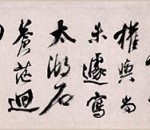 權輿尚
未遽寫
太湖石
蒼茫迴